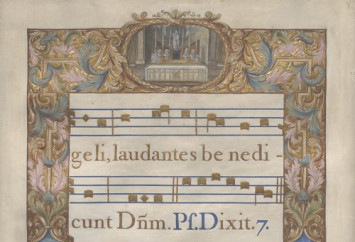 geli, laudantes be nedi -
cunt Dñm. Ps. Dixit. 7.